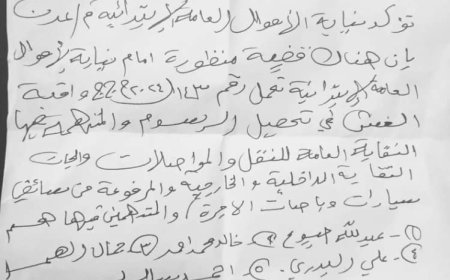 تؤكد نيابة الأموال العامة الإبتدائية م/عدن
بان هناك قضية منظورة امام نيابة الأموال
العامة الإبتدائية تحمل رقم واقعة
الغش في تحصيل الرسوم والمتهمة فيها
النقابة العامة للنقل والمواصلات واللجان
النقابية الداخلية والخارجية والمرفوعة من سائقي
سيارات وباصات الاجرة والمتهمين فيها هم
١- عبدالله ٢- خالد محمد احمد ٣- جمال
٤- علي ٥- احمد